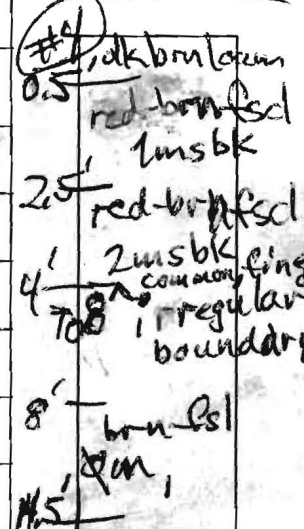 #4, dk brn loam
0.5'
red-brn fscl
1msbk
2.5' red-brn fscl
2msbk
common, fine
4'
To 8', irregular
boundary
8'
brn fsl
0m,
14.5'